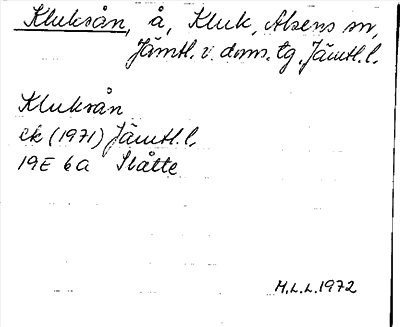 Kluksån, å, Kluk, Alsens sn,
Jämtl. v. doms. tg, Jämtl. l.
Kluksån
ek (1971) Jämtl. l.
19E 6a Slåtte
H.L.L. 1972